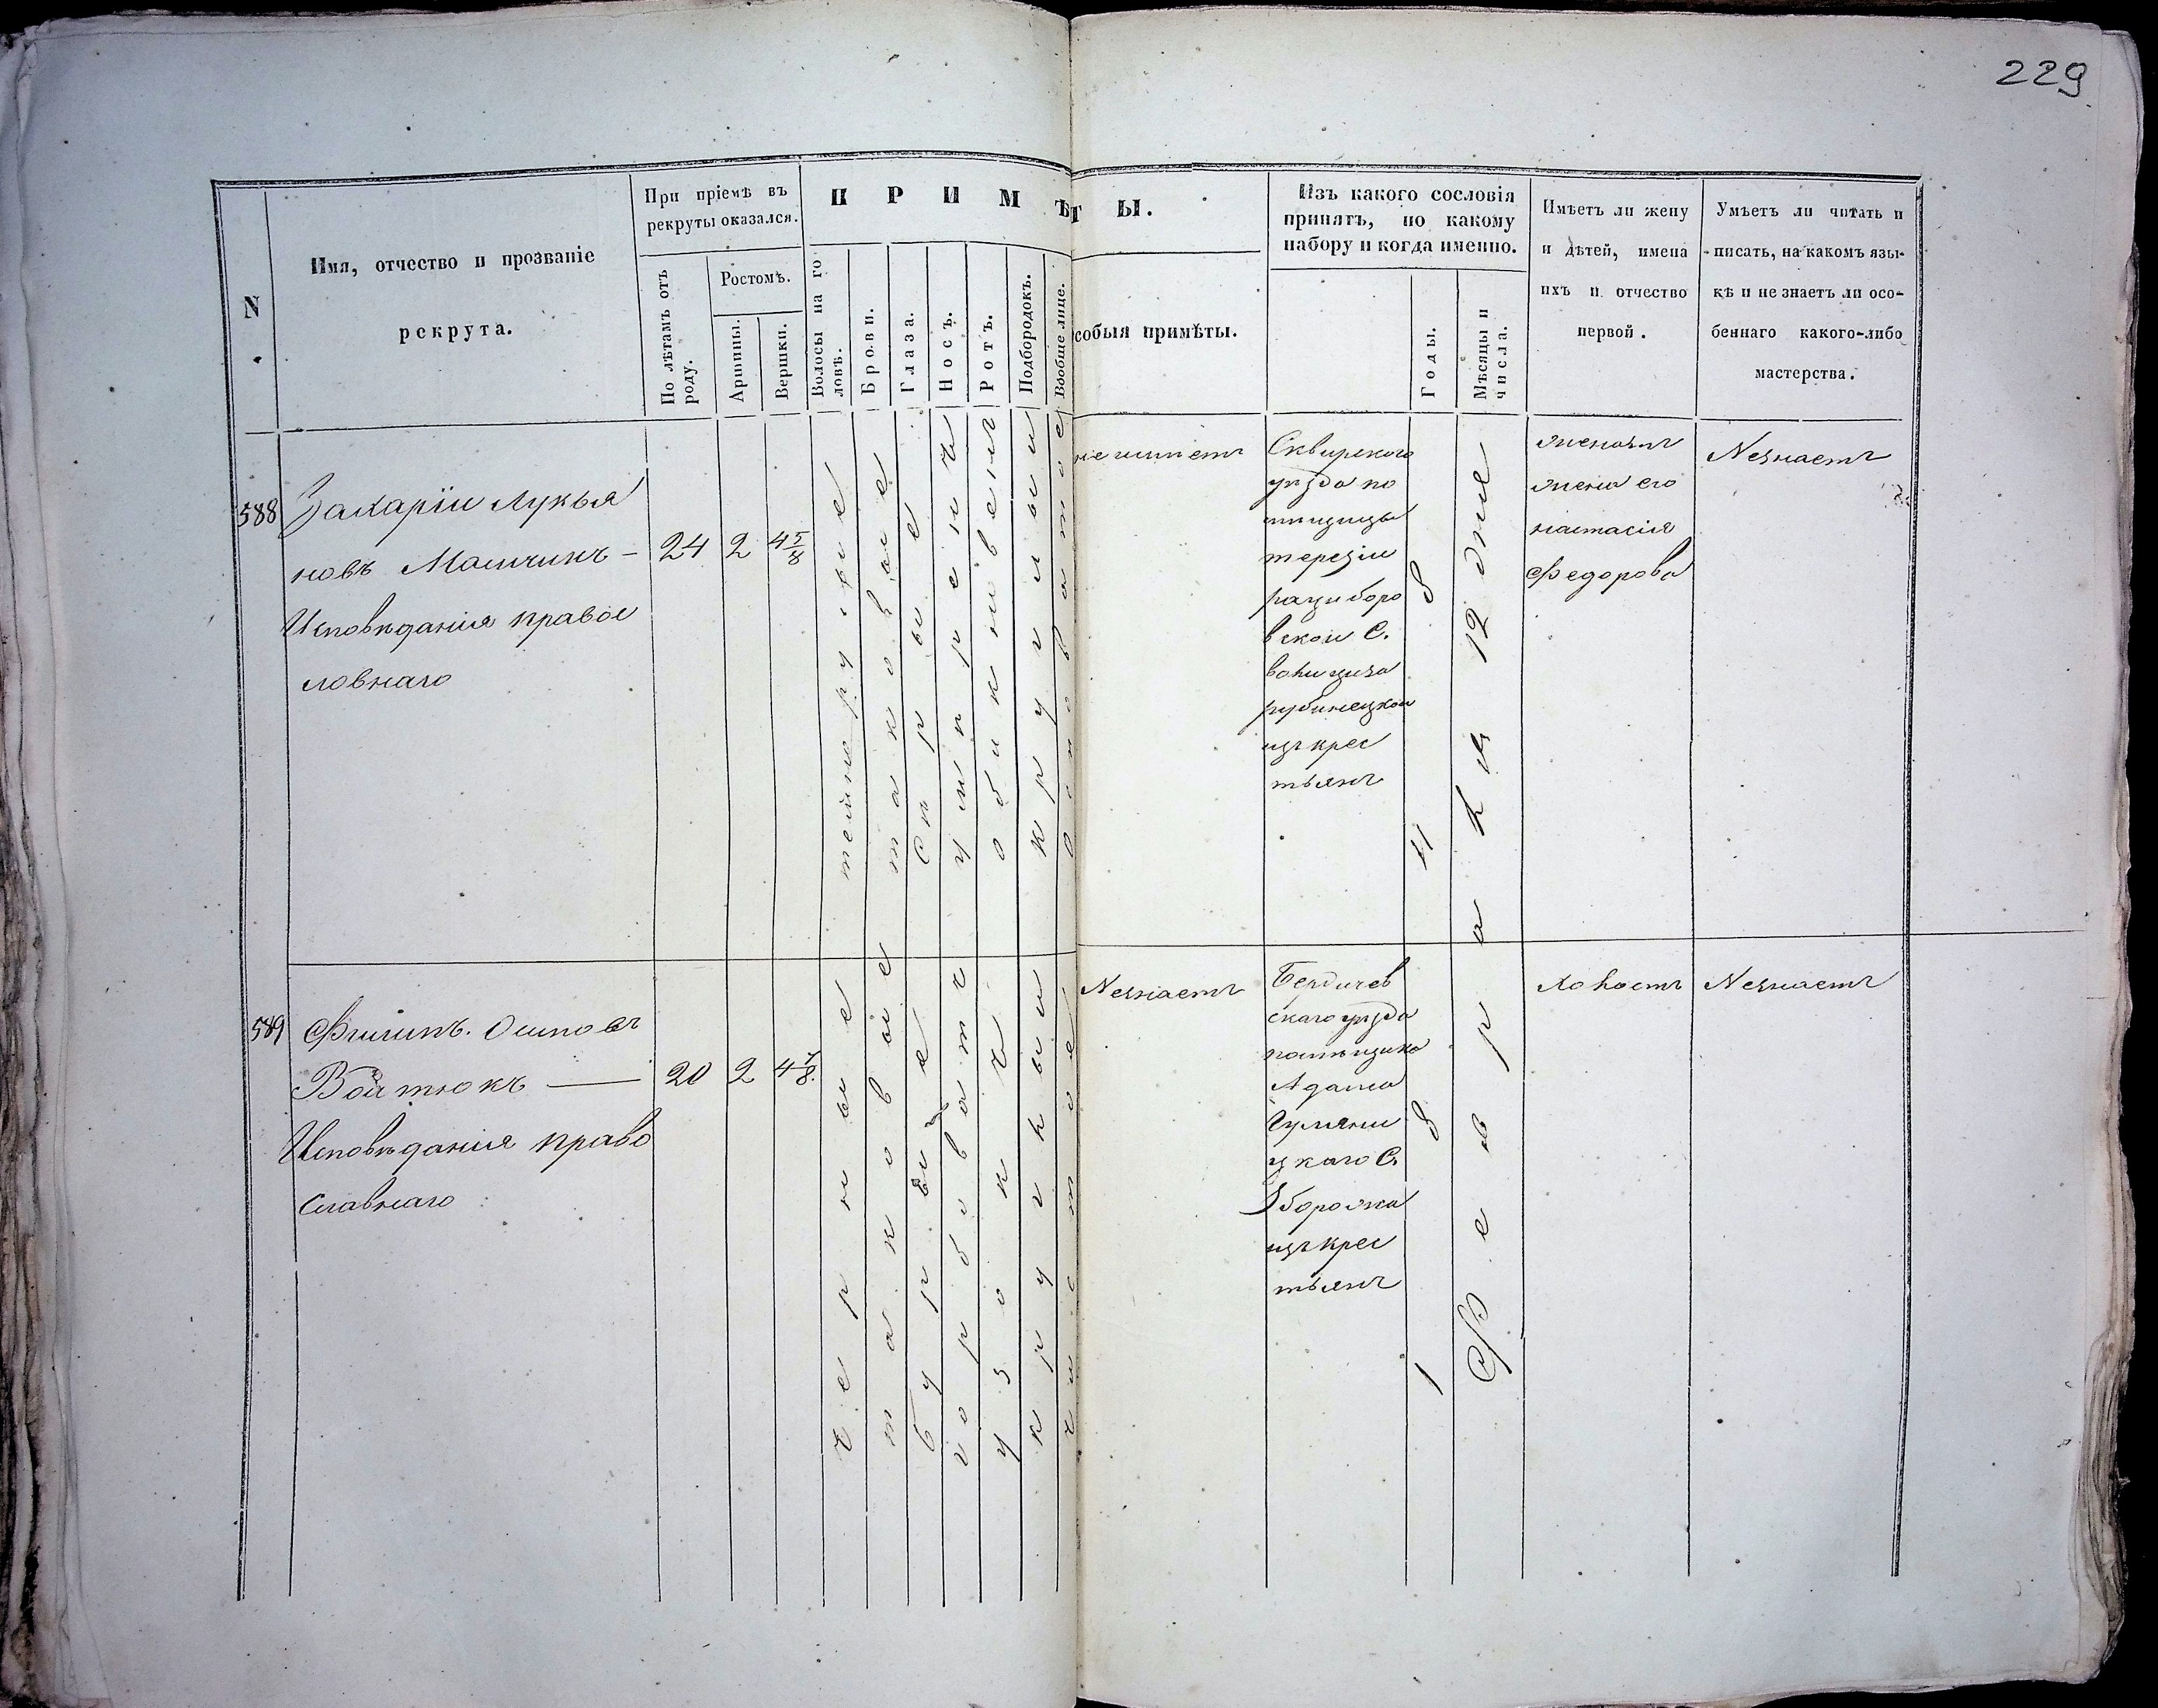 229
N
Имя, отчество и прозваніе
рекрута.
При пріемѣ въ
рекруты оказался.
По лѣтамъ отъ
роду.
Ростомъ.
Аршины.
Вершки.
П Р И М Ѣ Т Ы.
Волосы на го
ловѣ.
Брови.
Глаза.
Носъ.
Ротъ.
Подбородокъ.
Вообще лице.
собыя примѣты.
Изъ какого сословія
принятъ, по какому
набору и когда именно.
Годы.
Мѣсяцы и
числа.
Имѣетъ ли жену
и дѣтей, имена
ихъ и отчество
первой.
Умѣетъ ли читать и
писать, на какомъ язы-
кѣ и не знаетъ ли осо-
беннаго какого-либо
мастерства.
588
Захарій Лукья
новъ
Исповѣданія правос
ловнаго
24
2
4 5/8
темно русые
таковые
Сѣрые
умѣренъ
обикновенъ
Круглый
не имѣетъ
Сквирского
уѣзда по
мѣщицы
терезіи
рациборо
вской С.
волициза
рубинецкой
изъ крес
тьянъ
женатъ
жена его
настасія
Федорова
Незнаетъ
589
Филипъ Осиповъ
Войтюкъ —
Исповѣданія право
славнаго
20
2
4 7/8
черные
таковые
бурые
горбоватъ
узокъ
круглый
чистое
Незнаетъ
Бердичев
скаго уѣзда
помѣщика
Адама
цкаго С.
Зборожа
изъ крес
тьянъ
1 8 4
Февраля 12 дня
Холостъ
Незнаетъ